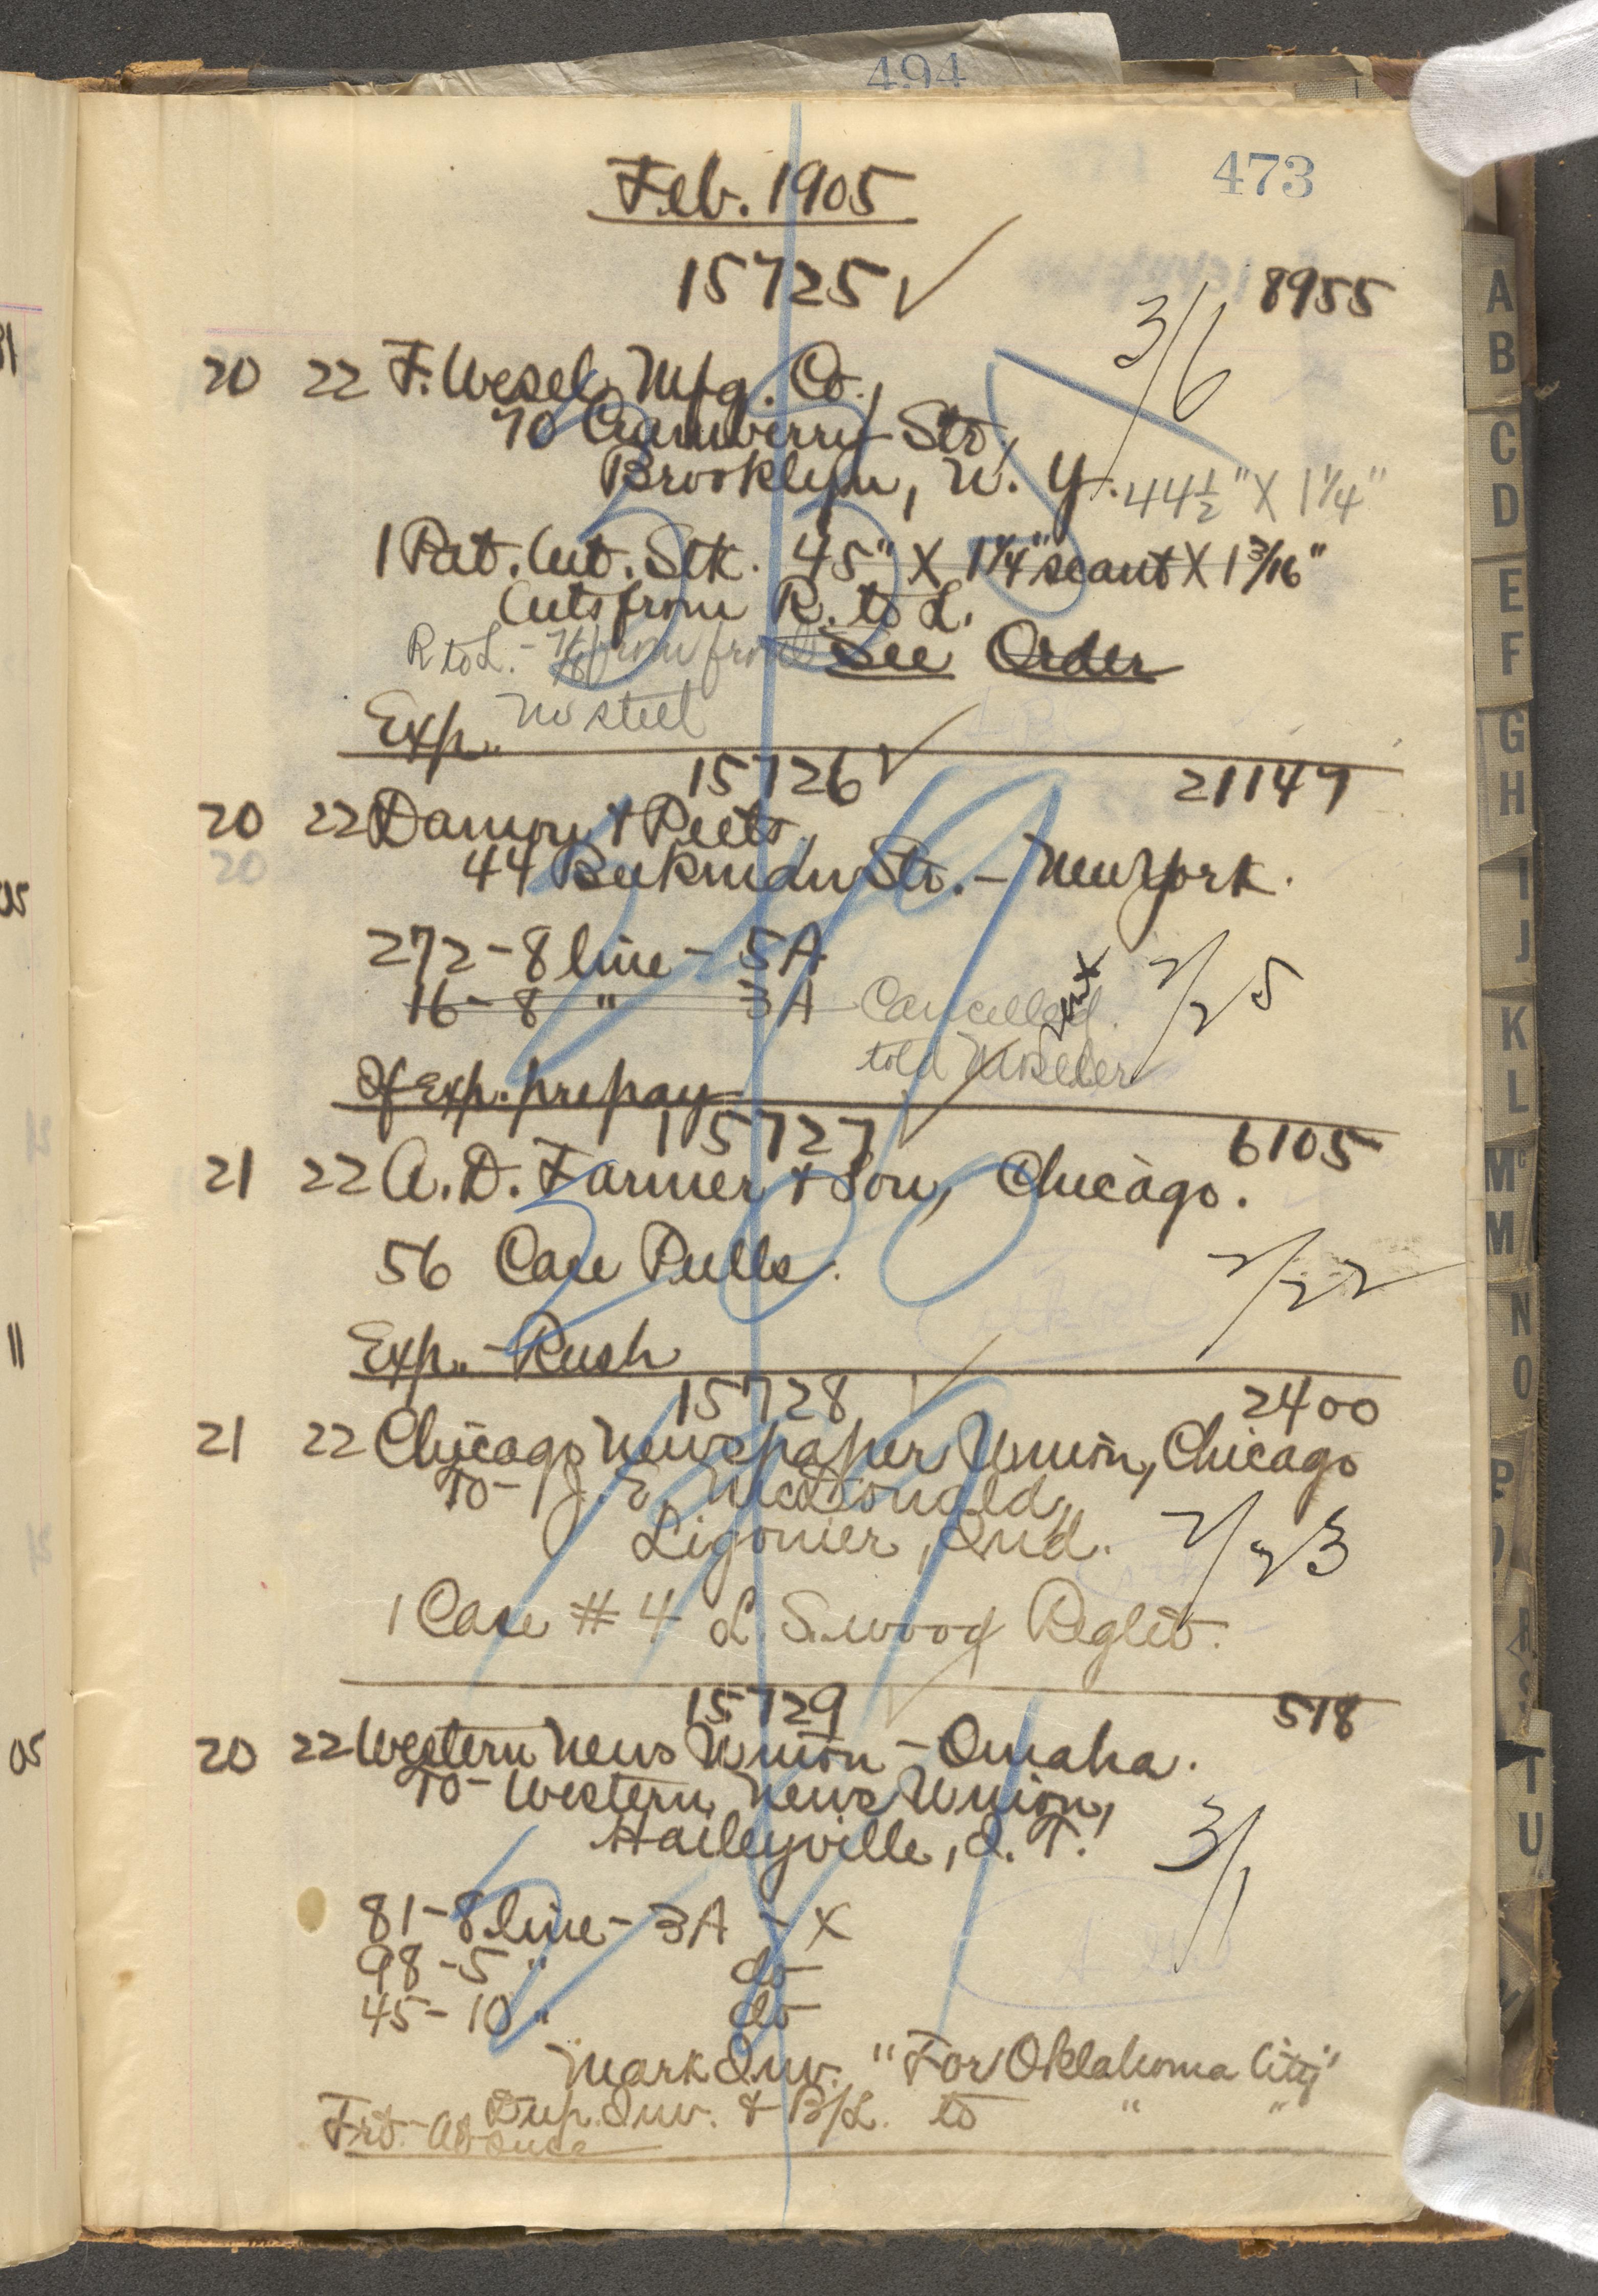 494
473
Feb. 1905
15725 ✓ 8955
3/6
20 22 F. Wesel Mfg. Co.,
70 Cranberry Str,
Brooklyn, N. Y.
44½" X 1¼"
1 Pat. Cut. Stk. 45" X 1¼" scant X 1 3/16"
Cuts from R. to L.
R to L. - from See Order
Exp. No steel
15726 ✓ 21149
20 22 Damon & Peets,
20
44 Beekman Str. - New York.
272 - 8 line - 5A
16 - 8 " 3A Cancelled.
2/25
told Wheeler
If Exp. prepay
15727 6105
21 22 A. D. Farmer & Son, Chicago.
56 Case Pulls.
2/22
Exp. - Rush
15728 2400
21 22 Chicago Newspaper Union, Chicago
To - J. E. McDonald,
Ligonier, Ind.
2/23
1 Case # 4 L. S. wood Reglet.
15729 518
20 22 Western News Union - Omaha.
To - Western News Union,
Haileyville, I. T.
3/1
81 - 8 line - 3A - X
98 - 5 " do
45 - 10 " do
Mark Inv. "For Oklahoma City"
Dup. Inv. & B/L. to " "
Frt.
A
B
C
D
E
F
G
H
I
J
K
L
Mc
M
N
O
P
Q
R
S
T
U